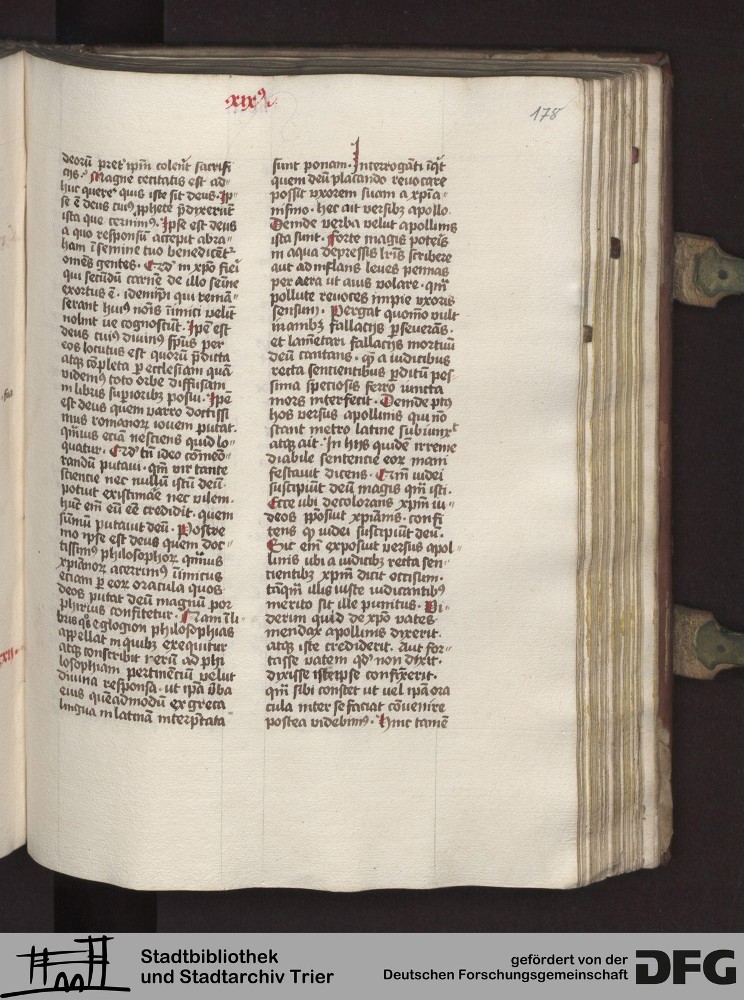 xixꝰ
178
deorū pret̉ ip̄m colen̄t sacrifi
cijs. Magne cecitatis est ad〃
huc querer̉ quis iste sit deus. Ip〃
se ē deus cuiꝰ ꝓphete p̄dixerūt
ista que cernimꝰ. Ipse est deus
a quo responsū accepit abra〃
ham ī semine tuo benedicēt̉
omēs gentes.
qui secūdū carnē de illo seīne
exortus ē. idemp̄i qui remā〃
serant huiꝰ noīs īimici velīt
nolīnt ve cognoscūt. Ipē est
deus cuiꝰ diuinꝰ sp̄us per
eos locutus est quorū p̄dicta
atqꝫ cōpleta ꝑ ecclesiam quā
videmꝰ toto orbe diffusam
in libris supioribꝫ posui. Ipē
est deus quem varro doctissi
mus romanoꝝ iouem putat.
qm̄uis eciā nesciens quid lo〃
quatur. tn̄ ideo cōmeō〃
randū putaui. qm̄ vir tante
sciencie nec nullū istū deū.
potuit existimāe nec vilem.
hūc em̄ eū eē credidit. quem
sūmū putauit deū. Postre
mo ip̄se est deus quem doc〃
tissimꝰ philosophoꝝ qm̄uis
xp̄ianoꝝ acerrimꝰ īimicus
eciam ꝑ eoꝝ oracula quos
deos putat deū magnū por
phirius confitetur. Nam ī li〃
bris qͦs eglogion philosophias
appellat in quibꝫ exequitur
atqꝫ conscribit rerū ad phi
losophiam pertinēciū velut
diuina responsa. ut ip̄a v̄ba
eius queadmodū ex greca
lingua in latinā interp̄tata
sunt ponam. Interrogāti īqͥt
quem deū placando reuocare
possit vxorem suam a xp̄ia〃
nismo. hec ait versibꝫ apollo.
Deinde verba velut apollinis
ista sunt. Forte magis poteris
in aqua depressis lr̄is scribere
aut adinflans leues pennas
per aera ut auis volare. qm̄
pollute reuoces impie vxoris
sensum. Pergat quoīno vult
inanibꝫ fallacijs ꝑseuerās.
et lamētari fallacijs mortuū
deū cantans. qͫ a iudicibus
recta sentientibus ꝑditū pes
sima speciosis ferro iuncta
mors interfecit. Deinde ptꝰ
hos versus apollinis qui nō
stant metro latine subiunxͭ
atqꝫ ait. In hijs quidē irreme
diabile sentencie eoꝝ mani
festauit dicens. iudei
suscipiūt deū magis qm̄ isti.
Ecce ubi decolorans xpm̄ iu〃
deos p̄posiut xp̄ianis. confi
tens qͫ iudei suscipiūt deū.
Sic em̄ exposuit versus apol〃
linis ubi a iudicibꝫ recta sen〃
cientibꝫ xpm̄ dicit occisum.
tāqm̄ illis iuste iudicantibꝰ
merito sit ille punitus. Vi〃
derim quid de xp̄o vates
mendax apollinis dixerit.
atqꝫ iste crediderit. Aut for〃
tasse vatem qd̓ non dixit.
dixisse iste ipse confixerit.
qm̄ sibi constet ut vel ip̄a ora
cula inter se faciat cōuenire
postea videbimꝰ. Hinc tamē
Stadtbibliothek
und Stadtarchiv Trier
gefördert von der
Deutschen Forschungsgemeinschaft
DFG